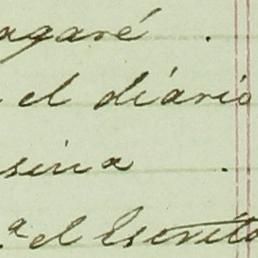 agaré .
el diario
sina .
.ª el Escrito